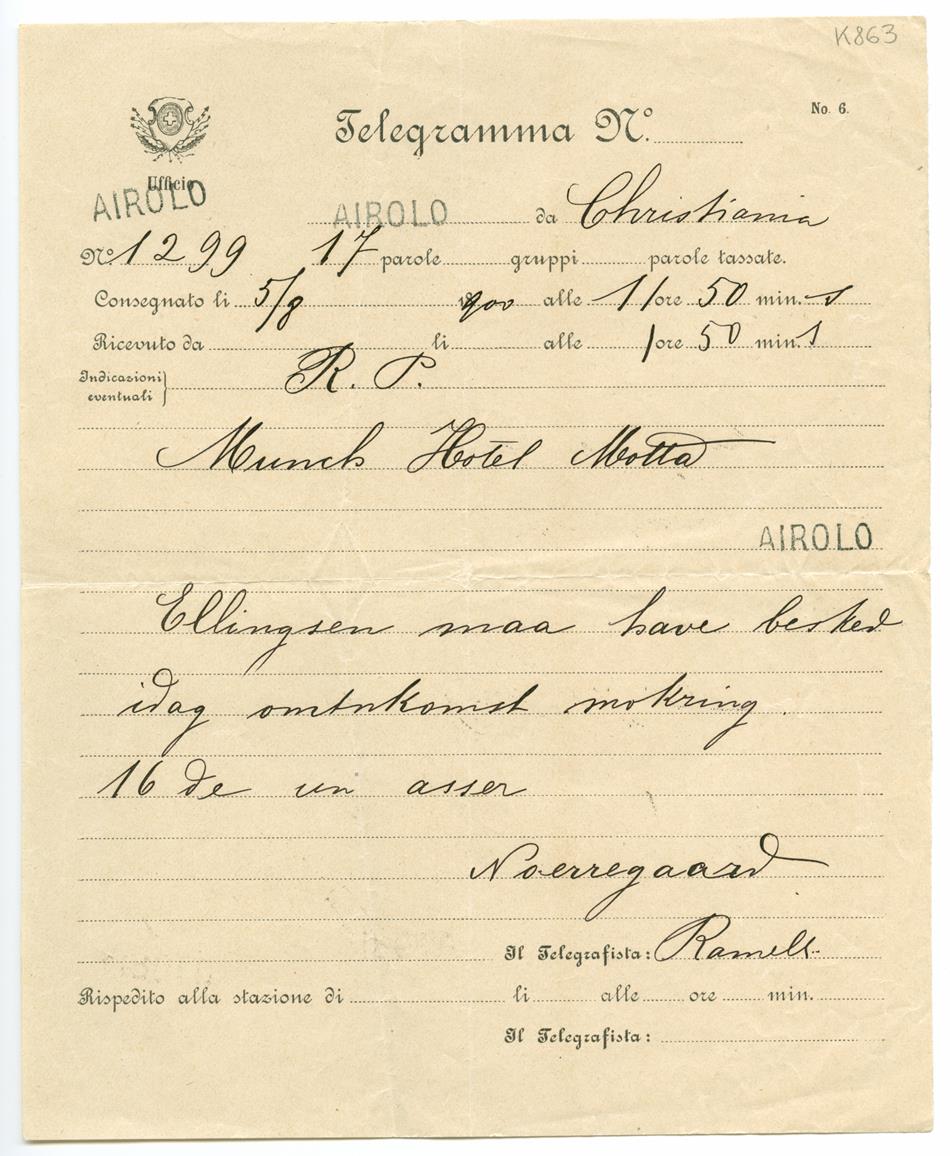 K863
No. 6.
Telegramma No.
Ufficio
AIROLO
AIROLO da Christiania
No. 1299 17 parole gruppi parole tassate.
Consegnato li 5/8 900 alle 11 ore 50 min. s
Ricevuto da li alle 1 ore 50 min. s
Indicazioni
eventuali
R. P.
Munch Hotel Motta
AIROLO
Ellingsen maa have besked
idag omtnkomst mokring.
16 de un asser
Noerregaard
Il Telegrafista: Ramell
Rispedito alla stazione di li alle ore min.
Il Telegrafista: